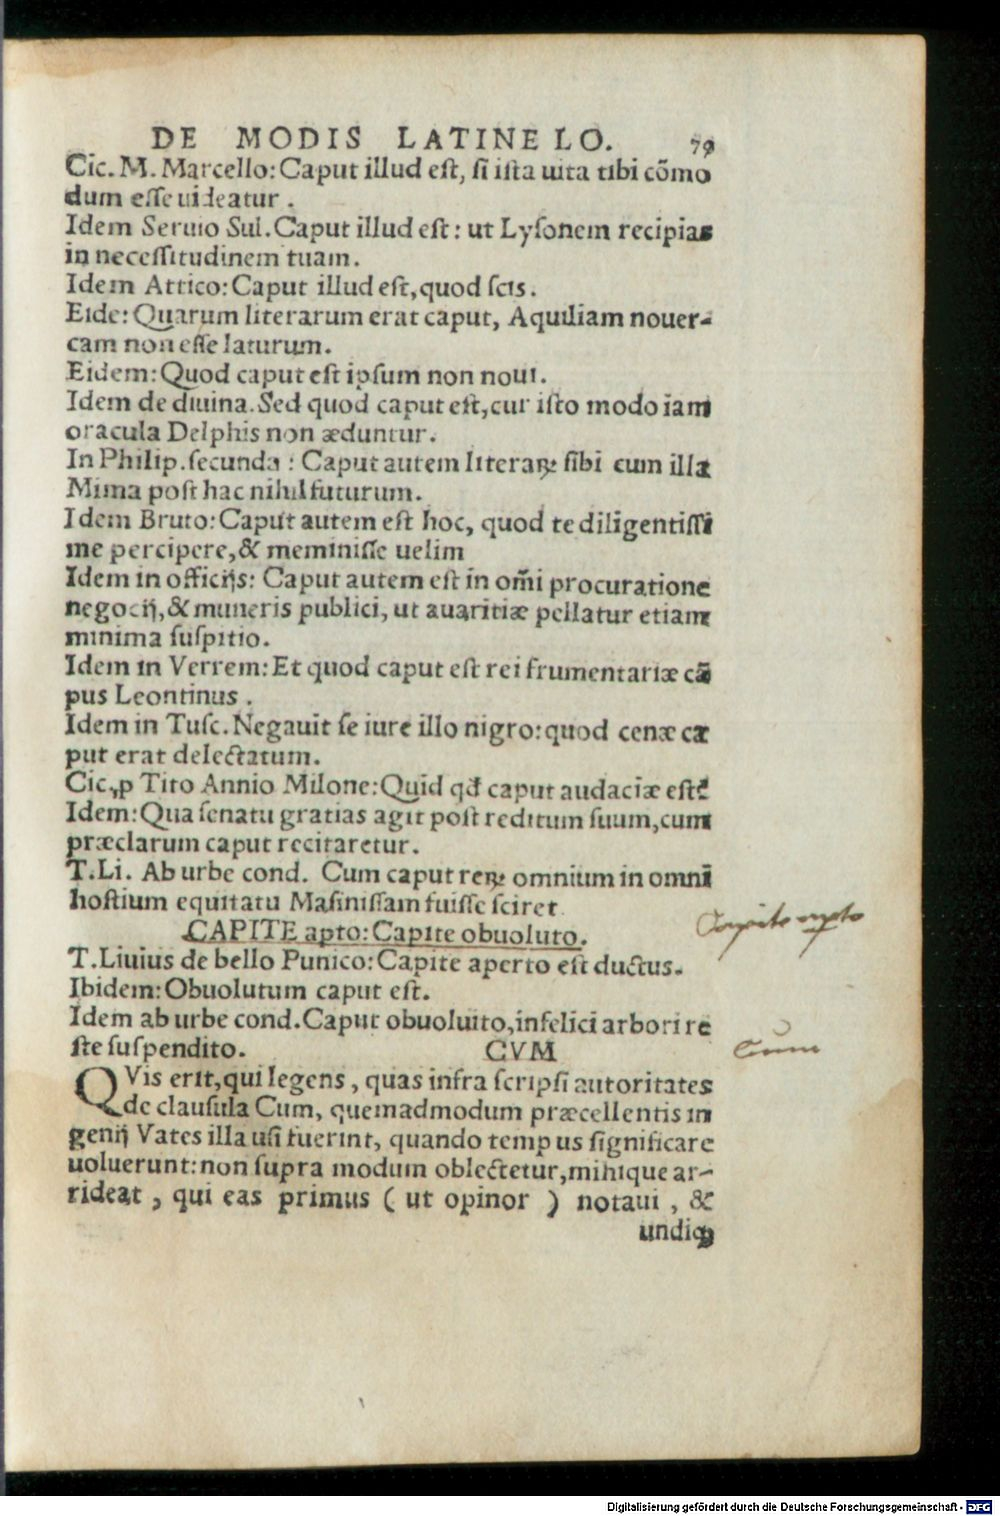 DE MODIS LATINE LO. 79
Cic. M. Marcello: Caput illud est, si ista uita tibi cõmo
dum esse uideatur.
Idem Seruio Sul. Caput illud est: ut Lysonem recipias
in necessitudinem tuam.
Idem Attico: Caput illud est, quod scis.
Eidẽ: Quarum literarum erat caput, Aquiliam nouer-
cam non esse laturum.
Eidem: Quod caput est ipsum non noui.
Idem de diuina. Sed quod caput est, cur isto modo iam
oracula Delphis non æduntur.
In Philip. secunda: Caput autem literaꝝ sibi cum illa
Mima post hac nihil futurum.
Idem Bruto: Caput autem est hoc, quod te diligentissi
me percipere, & meminisse uelim
Idem in officijs: Caput autem est in om̃i procuratione
negocij, & muneris publici, ut auaritiæ pellatur etiam
minima suspitio.
Idem in Verrem: Et quod caput est rei frumentariæ cã
pus Leontinus.
Idem in Tusc. Negauit se iure illo nigro: quod cenæ ca
put erat delectatum.
Cic. ꝓ Tito Annio Milone: Quid qđ caput audaciæ est?
Idem: Qua senatu gratias agit post reditum suum, cum
præclarum caput recitaretur.
T. Li. Ab urbe cond. Cum caput reꝝ omnium in omni
hostium equitatu Masinissam fuisse sciret
CAPITE apto: Capite obuoluto.
Capite
T. Liuius de bello Punico: Capite aperto est ductus.
Ibidem: Obuolutum caput est.
Idem ab urbe cond. Caput obuoluito, infelici arbori re
ste suspendito. CVM
Cum
QVis erit, qui legens, quas infra scripsi autoritates
de clausula Cum, quemadmodum præcellentis in
genij Vates illa usi fuerint, quando tempus significare
uoluerunt: non supra modum oblectetur, mihique ar-
rideat, qui eas primus (ut opinor) notaui, &
undiqꝫ
Digitalisierung gefördert durch die Deutsche Forschungsgemeinschaft - DFG